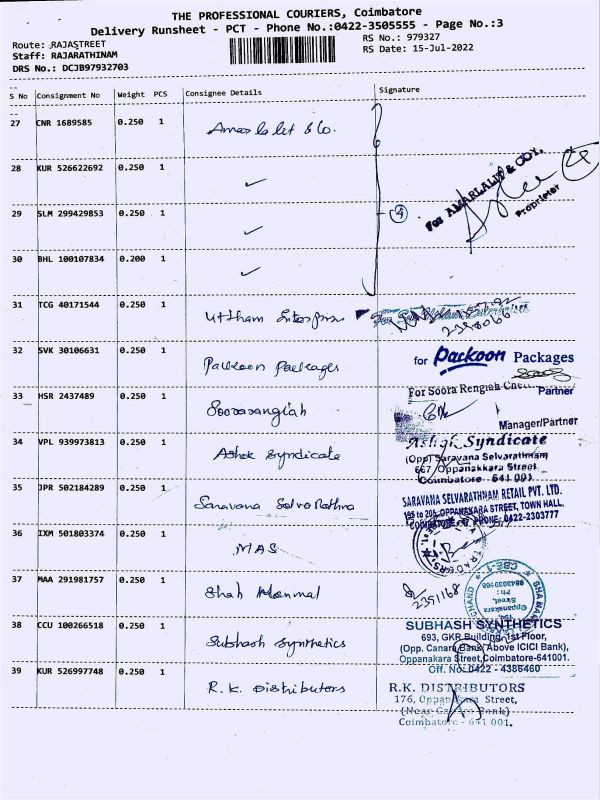 THE PROFESSIONAL COURIERS, Coimbatore
Delivery Runsheet - PCT - Phone No.:0422-3505555 - Page No.:3
Route: RAJASTREET
Staff: RAJARATHINAM
DRS No.: DCJB97932703
RS No.: 979327
RS Date: 15-Jul-2022
S No Consignment No Weight PCS Consignee Details Signature
27 CNR 1689585 0.250 1 Amarlalit & Co.
28 KUR 526622692 0.250 1 ✓
29 SLM 299429853 0.250 1 ✓
30 BHL 100107834 0.200 1 ✓
4
For AMARLALIT & COY.
Proprietor
31 TCG 40171544 0.250 1 Uttham Enterprise
32 SVK 30106631 0.250 1 Packoon Packages
for Packoon Packages
Partner
33 HSR 2437489 0.250 1 Soorarangiah
For Soora Rengiah
Manager/Partner
34 VPL 939973813 0.250 1 Ashok Syndicate
Ashok Syndicate
(Opp) Saravana Selvarathnam
667, Oppanakkara Street,
Coimbatore - 641 001
35 JPR 502184289 0.250 1 Saravana Selva Rathna
SARAVANA SELVARATHNAM RETAIL PVT. LTD.
OPPANAKARA STREET, TOWN HALL,
PHONE: 0422-2303777
36 IXM 501803374 0.250 1 MAS
37 MAA 291981757 0.250 1 Shah Manmal
2391168
38 CCU 100266518 0.250 1 Subhash Synthetics
SUBHASH SYNTHETICS
693, GKR Building, 1st Floor,
(Opp. Canara Bank Above ICICI Bank),
Oppanakara Street, Coimbatore-641001.
Off. No: 0422 - 4386460
39 KUR 526997748 0.250 1 R.K. Distributors
R.K. DISTRIBUTORS
176, Oppanakara Street,
Coimbatore - 641 001.